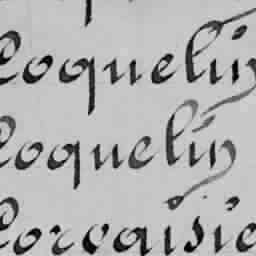 Coquelin
Coquelin
Corvaisie